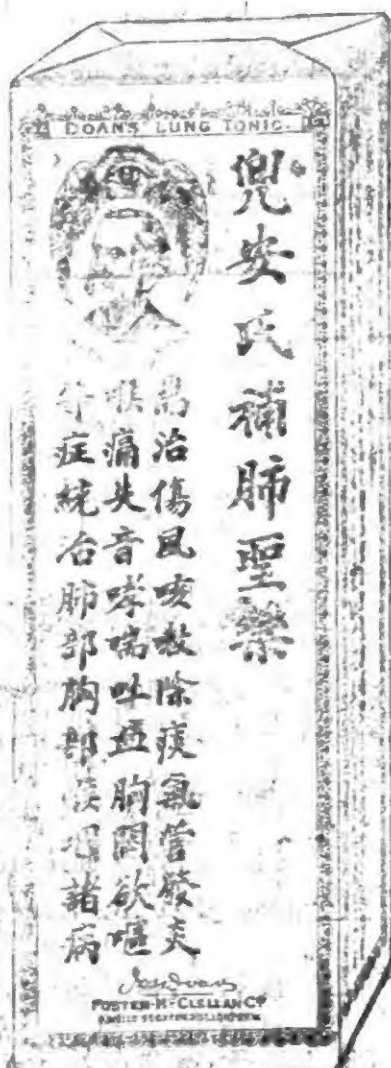 DOAN'S LUNG TONIC.
兜安氏補肺聖藥
治傷風咳嗽除痰氣管發炎
喉痛失音哮喘吐血胸悶欲嘔
等症統治肺部胸部諸病
Jas Doan
FOSTER-McCLELLAN Co